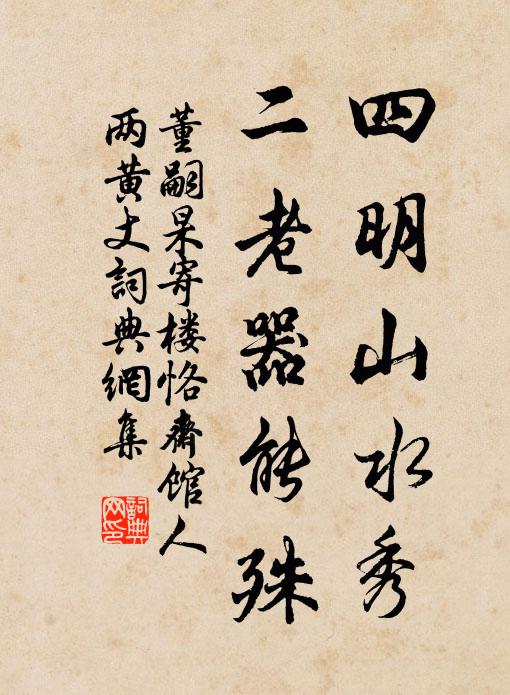 四明山水秀
二老器能殊
董嗣杲寄楼恪斋馆人
两黄丈詞典網集
詞典
网印